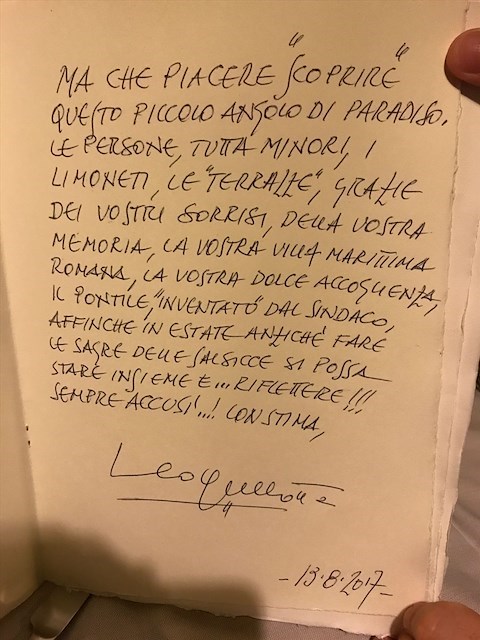 MA CHE PIACERE "SCOPRIRE"
QUESTO PICCOLO ANGOLO DI PARADISO.
LE PERSONE, TUTTA MINORI, I
LIMONETI, LE "TERRAZZE", GRAZIE
DEI VOSTRI SORRISI, DELLA VOSTRA
MEMORIA, LA VOSTRA VILLA MARITTIMA
ROMANA, LA VOSTRA DOLCE ACCOGLIENZA,
IL PONTILE, "INVENTATO" DAL SINDACO,
AFFINCHE IN ESTATE ANZICHÉ FARE
LE SAGRE DELLE SALSICCE SI POSSA
STARE INSIEME E... RIFLETTERE!!!
SEMPRE ACCUSÌ...! CON STIMA,
Leo Gullotta
- 13·8·2017-